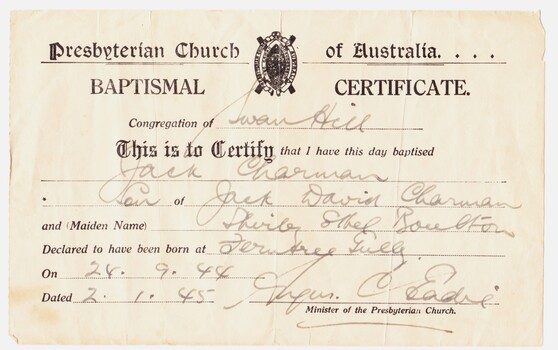 Presbyterian Church of Australia. . . .
BAPTISMAL CERTIFICATE.
Congregation of Swan Hill
This is to Certify that I have this day baptised
Jack Charman
Son of Jack David Charman
and (Maiden Name) Shirley Ethel Boulton
Declared to have been born at Ferntree Gully
On 24. 9. 44
Dated 2. 1. 45 Angus. C Eadie
Minister of the Presbyterian Church.